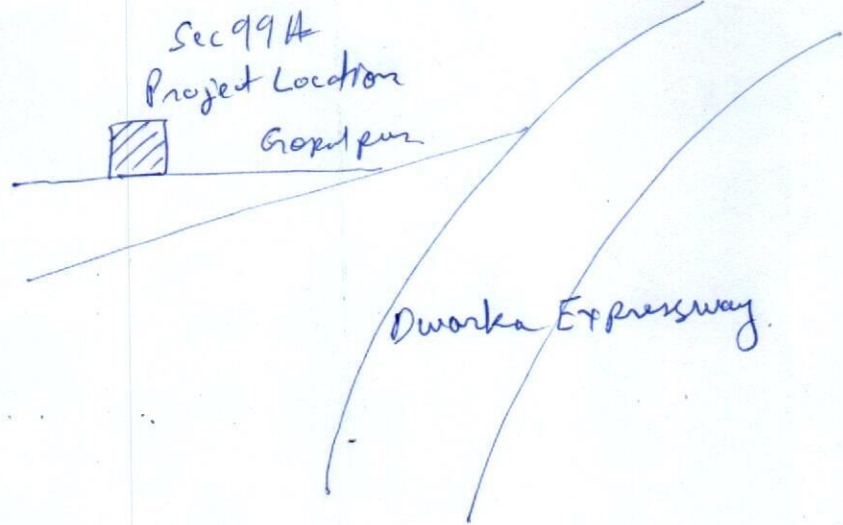 Sec 99 A
Project Location
Gopalpur
Dwarka Expressway.